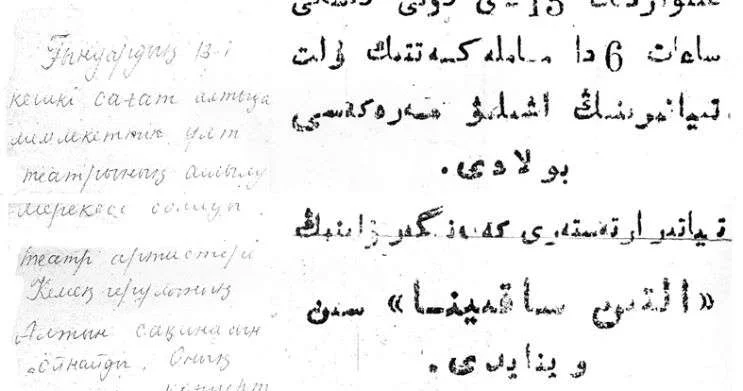 Ғынуардың 13-і
кешкі сағат алтыда
мемлекеттік ұлт
театрының ашылу
мерекесі болады.
театр артистері
Кемеңгерұлының
Алтын сақинасын
ойнайды. Оның
концерт
13
ساعات 6 دا مەملەكەتتىك ۇلت
تىياتىرىنىڭ اشىلىۋ مەرەكەسى
بولادى.
تىياتىر ارتەستەرى
«التىن ساقيينا» سىن
وينايدى.